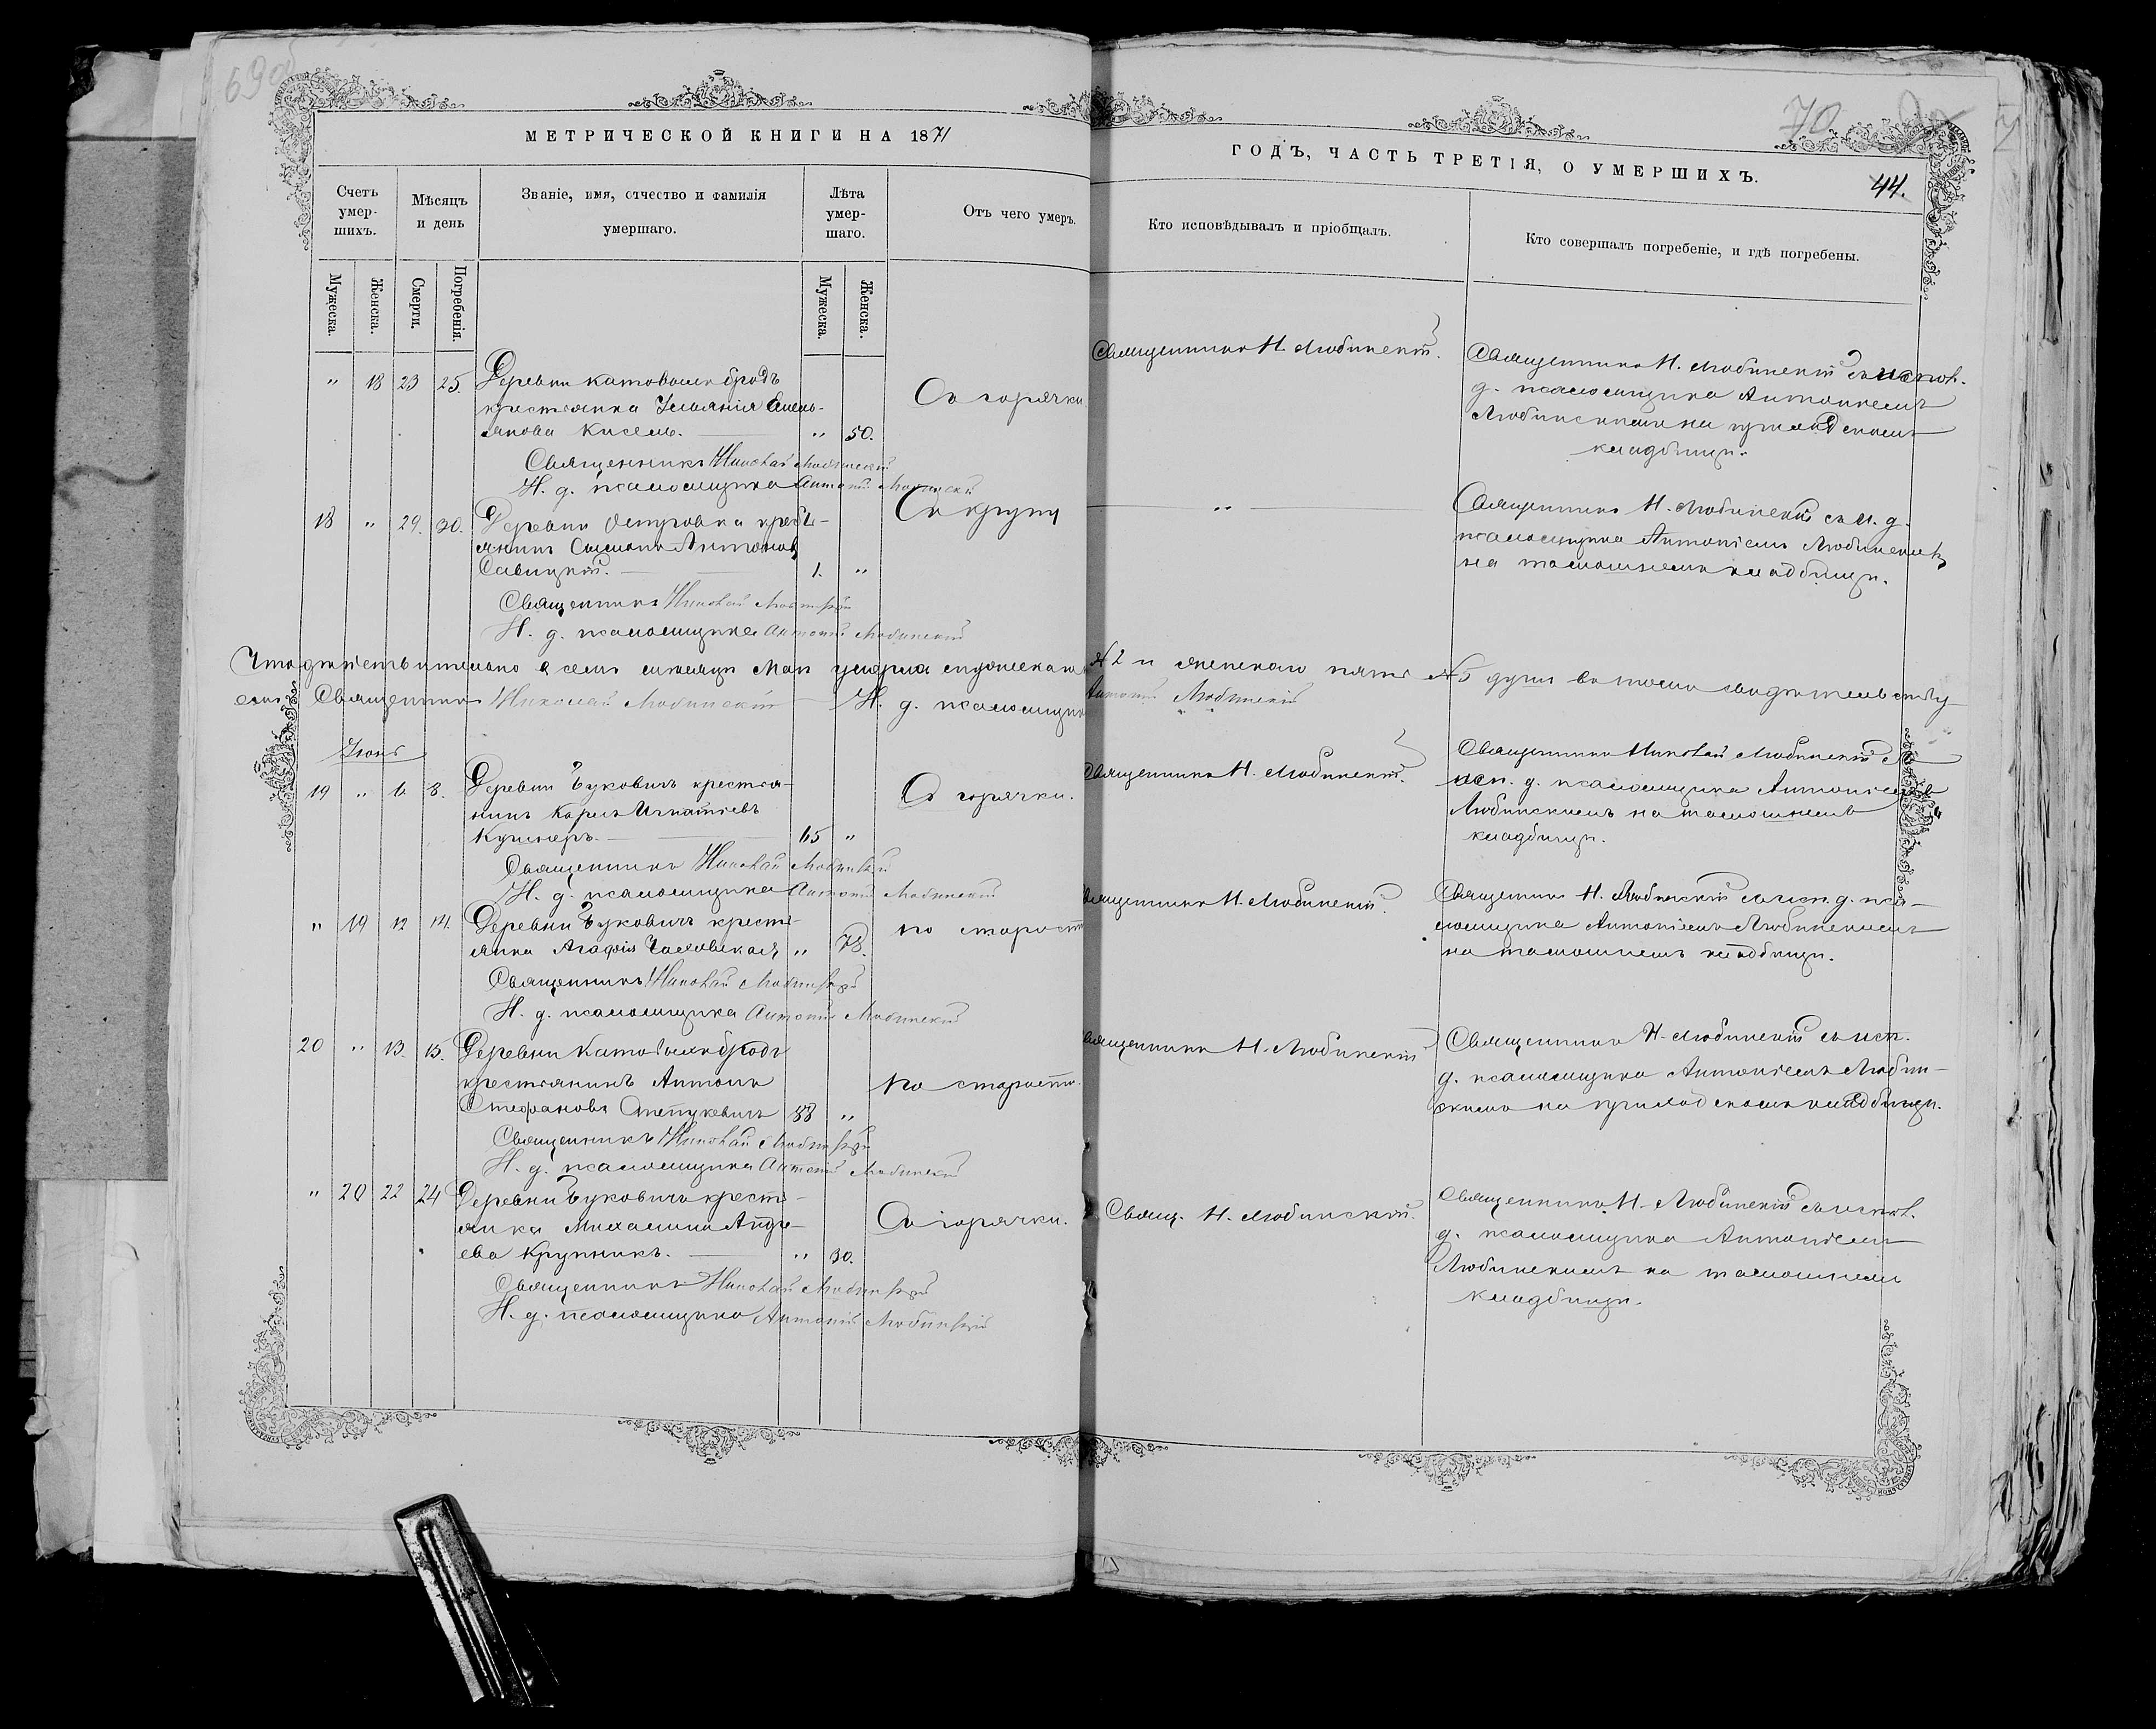 69об
МЕТРИЧЕСКОЙ КНИГИ НА 1871
Счетъ умер-шихъ.
Мѣсяцъ и день
Званіе, имя, отчество и фамилія умершаго.
Лѣта умер-шаго.
Отъ чего умеръ.
Мужеска.
Женска.
Смерти.
Погребенія.
Мужеска.
Женска.
" 18 23 25. Деревни Катовыхъ бродъ
крестьянка Емель-
янова Кисель. " 50.
Съ горячки.
Священникъ Николай Любинскій
И. д. псаломщика Антоній Любинскій
18 " 29. 30. Деревни Островка кресть-
янинъ Антоновъ
Савицкій. 1. "
Съ крупу
Священникъ Николай Любинскій
И. д. псаломщика Антоній Любинскій
Что дѣйствительно въ семъ мѣсяцѣ Маѣ умерло мужескаго
Священникъ Николай Любинскій И. д. псаломщика
Іюнь
19 " 6. 8. Деревни Буковичъ крестья-
нинъ Карпъ Игнатіевъ
Кушнеръ. 65 "
Съ горячки.
Священникъ Николай Любинскій
И. д. псаломщика Антоній Любинскій
" 19 12 14. Деревни Буковичъ кресть-
янка Агафія " 78.
по старости
Священникъ Николай Любинскій
И. д. псаломщика Антоній Любинскій
20 " 13. 15. Деревни Катовыхъ бродъ
крестьянинъ Антонъ
Стефановъ 88 "
по старости.
Священникъ Николай Любинскій
И. д. псаломщика Антоній Любинскій
" 20 22 24 Деревни Буковичъ кресть-
янка Михалина Андре-
ева Крупникъ. " 30.
Съ горячки.
Священникъ Николай Любинскій
И. д. псаломщика Антоній Любинскій
70
ГОДЪ, ЧАСТЬ ТРЕТІЯ, О УМЕРШИХЪ.
44.
Кто исповѣдывалъ и пріобщалъ.
Кто совершалъ погребеніе, и гдѣ погребены.
Священникъ Н. Любинскій.
Священникъ Н. Любинскій съ испов.
д. псаломщика Антоніемъ
Любинскимъ на приходскомъ
кладбищѣ.
"
Священникъ Н. Любинскій съ и. д.
псаломщика Антоніемъ Любинскимъ
на тамошнемъ кладбищѣ.
№ 2 и женскаго пять № 5 душъ въ томъ свидѣтельству-
Антоній Любинскій
Священникъ Н. Любинскій.
Священникъ Николай Любинскій съ
исп. д. псаломщика Антоніемъ
Любинскимъ на тамошнемъ
кладбищѣ.
Священникъ Н. Любинскій.
Священникъ Н. Любинскій съ исп. д. пса-
ломщика Антоніемъ Любинскимъ
на тамошнемъ кладбищѣ.
Священникъ Н. Любинскій
Священникъ Н. Любинскій съ исп.
д. псаломщика Антоніемъ Любин-
скимъ на приходскомъ кладбищѣ.
Свящ. Н. Любинскій.
Священникъ Н. Любинскій съ испов.
д. псаломщика Антоніемъ
Любинскимъ на тамошнемъ
кладбищѣ.